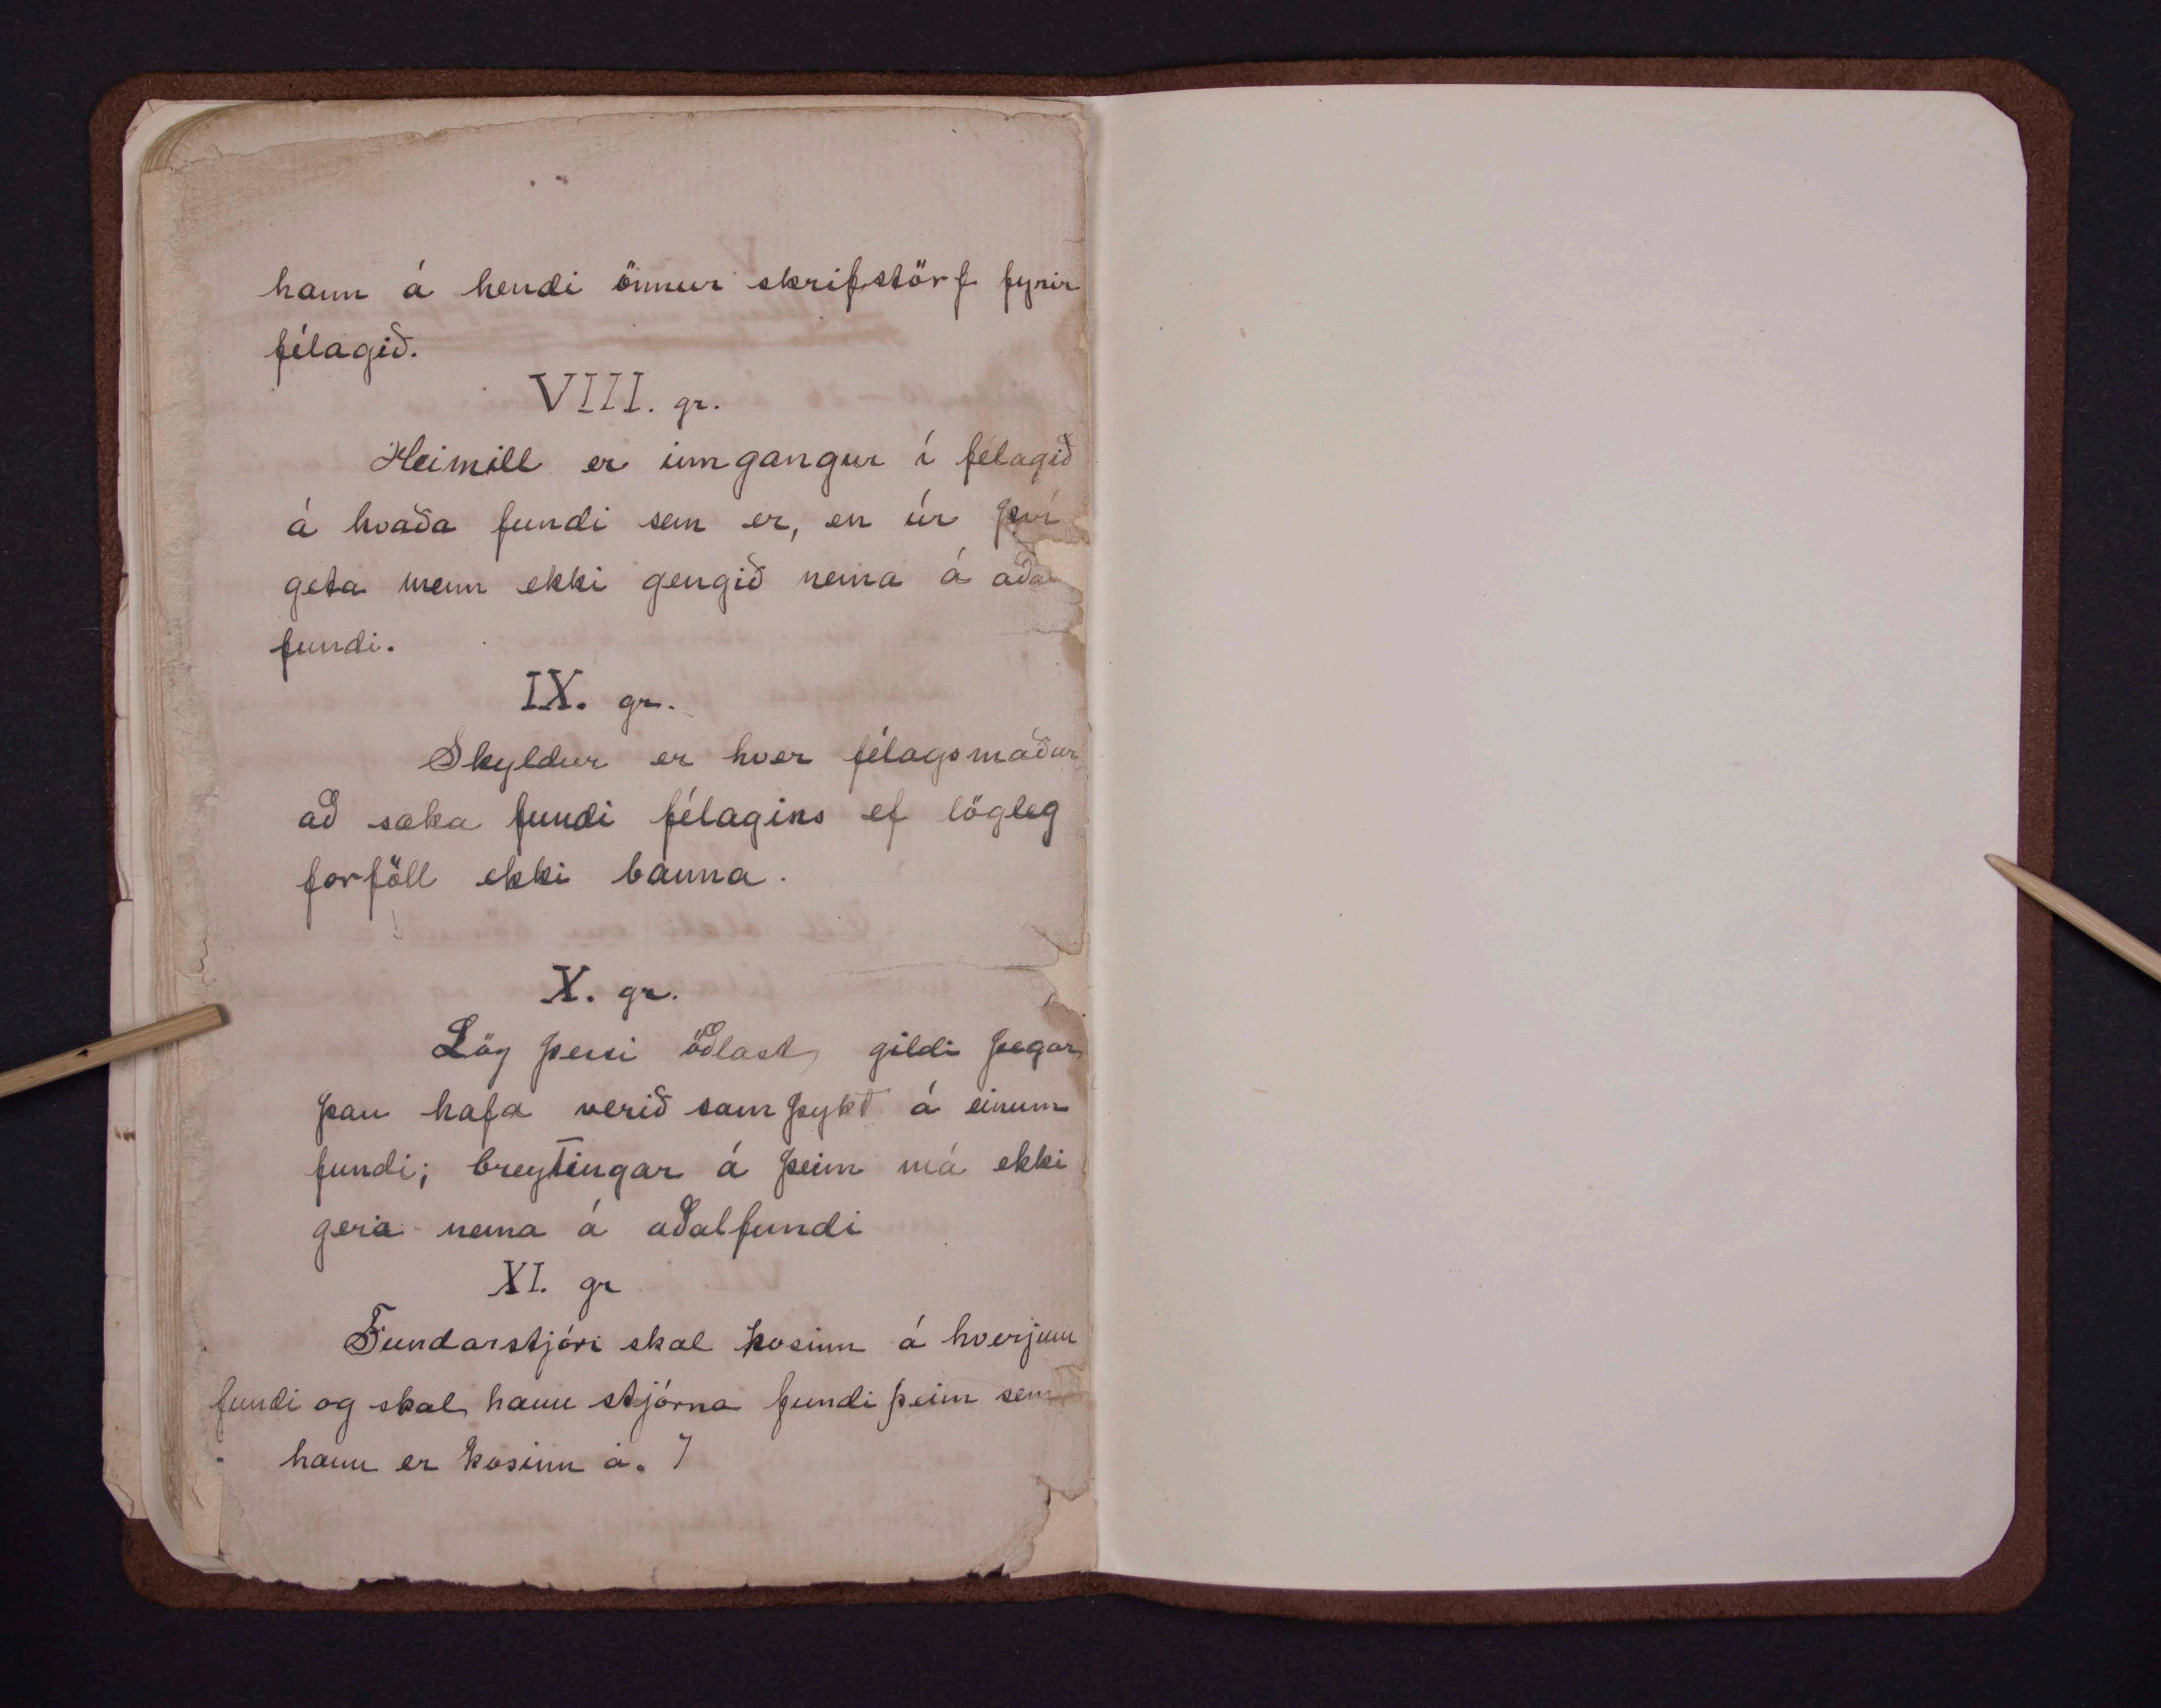 hann á hendi önnur skrifstörf fyrir
félagið.
VIII. gr.
Heimill er inngangur í félagið
á hvaða fundi sem er, en úr því
geta menn ekki gengið nema á aðal
fundi.
IX. gr.
Skyldur er hver félagsmaður
að sækja fundi félagins ef lögleg
forföll ekki banna.
X. gr.
Lög þessi öðlast gildi þegar
þau hafa verið samþykt á einum
fundi; breytingar á þeim má ekki
gera nema á aðalfundi
XI. gr
Fundarstjóri skal kosinn á hverjum
fundi og skal hann stjórna fundi þeim sem
hann er kosinn á.